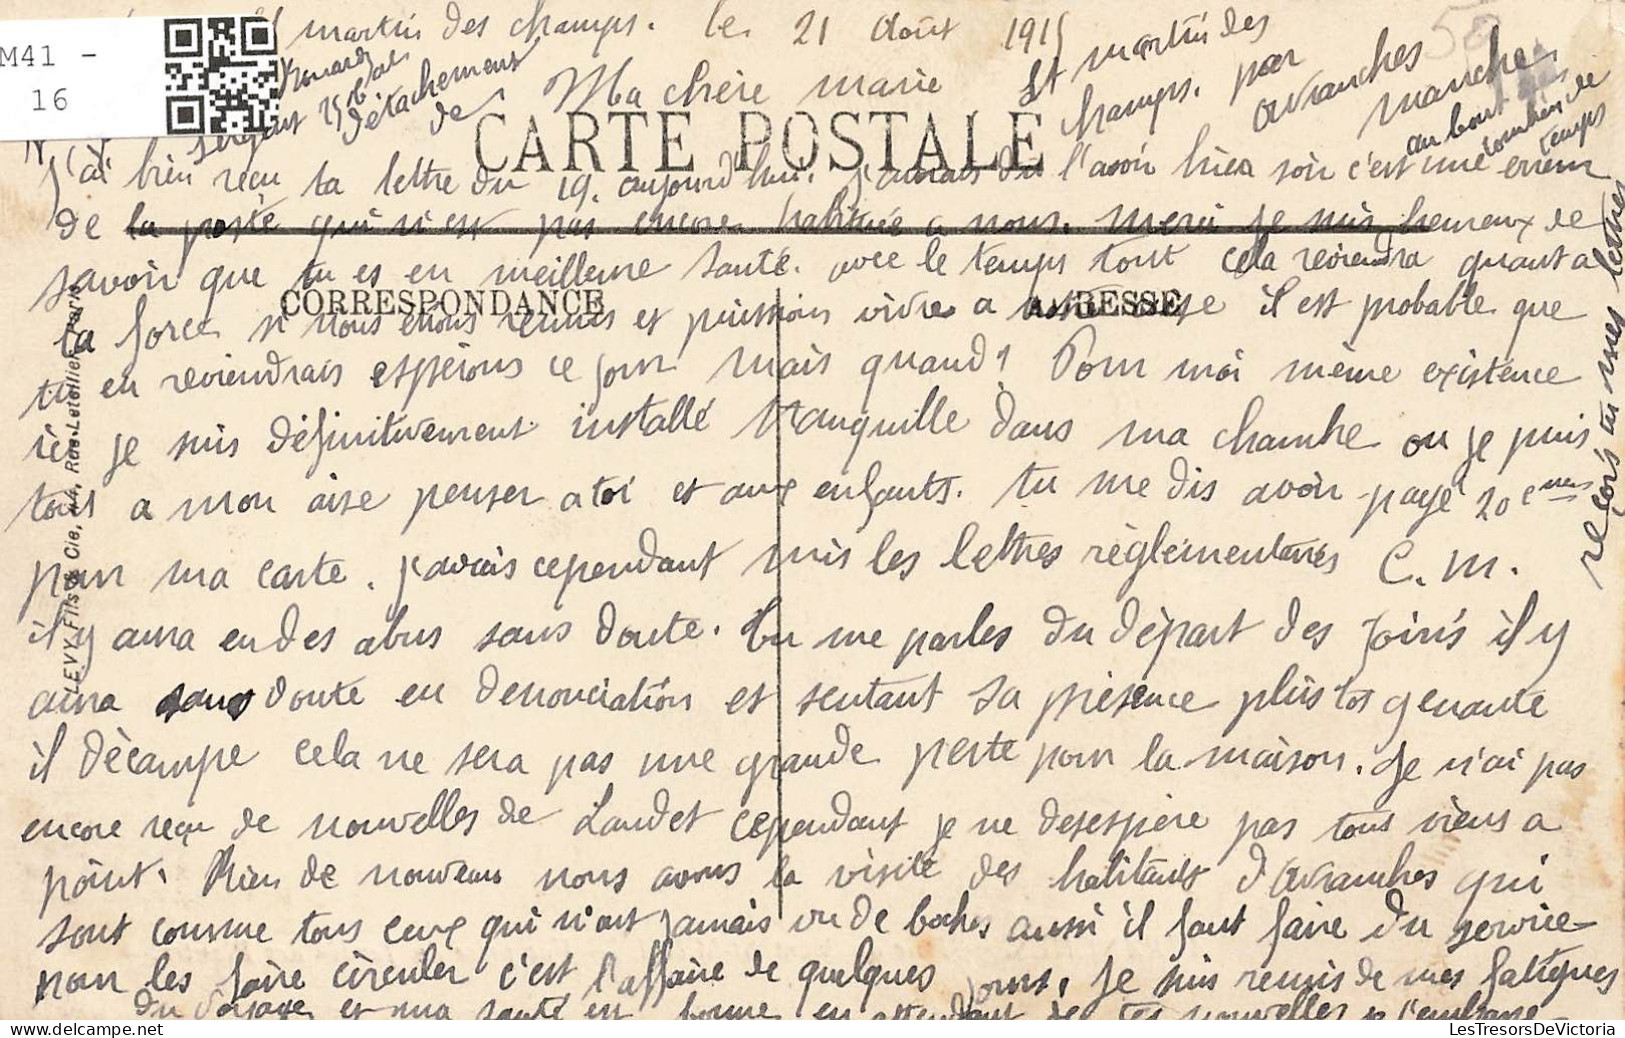 M41 -
16
St martin des champs. le 21 Août 1915
Ma chère marie
Renard
sergent 25e
détachement
de
St martin des
champs. par
avranches
manche
au bout de
combien de
temps
reçois tu mes lettres
CARTE POSTALE
J'ai bien reçu ta lettre du 19. aujourd'hui. j'aurais du l'avoir hier soir c'est une erreur
de la poste qui n'est pas encore habituée a nous. merci je suis heureux de
savoir que tu es en meilleure santé. avec le temps tout cela reviendra quant a
CORRESPONDANCE
ADRESSE
ta force si nous étions réunis et puissions vivre a notre aise il est probable que
tu en reviendrais espérons ce jour mais quand? Pour moi même existence
ici je suis définitivement installé tranquille dans ma chambre ou je puis
tout a mon aise penser a toi et aux enfants. tu me dis avoir payé 20 cmes
pour ma carte. j'avais cependant mis les lettres règlementaires C. M.
il y aura eu des abus sans doute. tu me parles du départ des Join's il y
aura sans doute eu denonciation et sentant sa présence plus tot genante
il décampe cela ne sera pas une grande perte pour la maison. Je n'ai pas
encore reçu de nouvelles de Laudet cependant je ne desespère pas tout viens a
point. Rien de nouveau nous avons la visite des habitants d'avranches qui
sont comme tous ceux qui n'ont jamais vu de boches aussi il faut faire du service
pour les faire circuler c'est l'affaire de quelques jours. Je suis remis de mes fatigues
du voyage et ma santé est bonne en attendant de tes nouvelles je t'embrasse
LEVY Fils & Cie, 44, Rue Letellier, Paris
LesTresorsDeVictoria